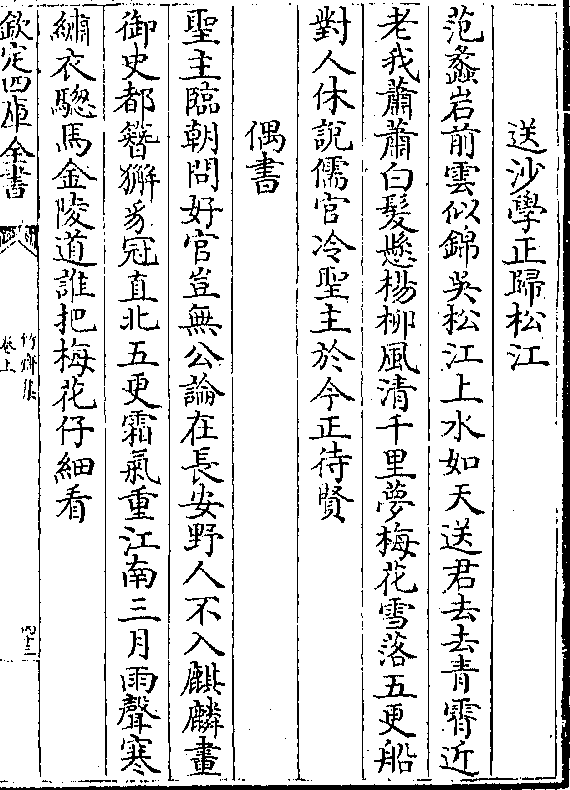 送沙學正歸松江
范蠡岩前雲似錦吳松江上水如天送君去去青霄近
老我蕭蕭白髮懸楊柳風清千里夢梅花雪落五更船
對人休說儒官冷聖主於今正待賢
偶書
聖主臨朝問好官豈無公論在長安野人不入麒麟畫
御史都簪獬豸冠直北五更霜氣重江南三月雨聲寒
繡衣驄馬金陵道誰把梅花仔細看
欽定四庫全書
竹齋集
卷上
四十三